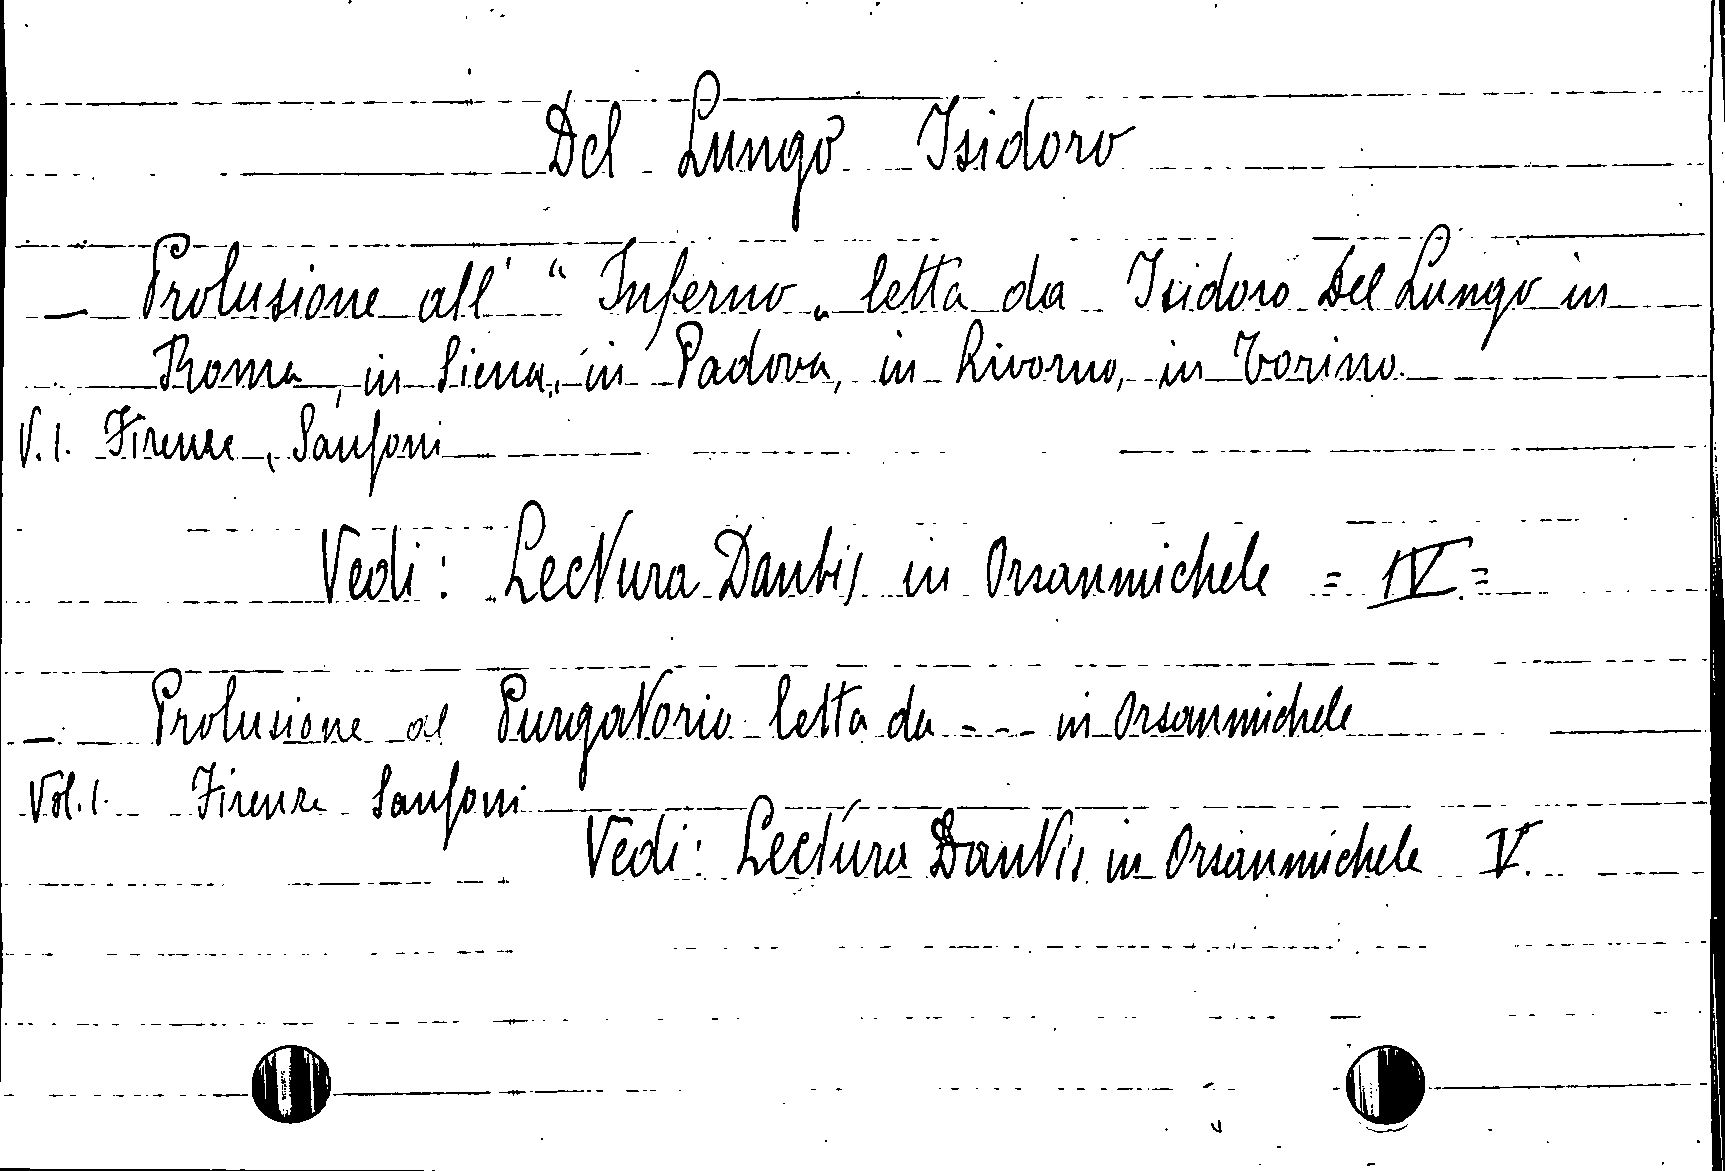 Del Lungo Isidoro
— Prolusione all' "Inferno„ letta da Isidoro Del Lungo in
Roma, in Siena, in Padova, in Livorno, in Torino.
V. 1. Firenze, Sansoni
Vedi: Lectura Dantis in Orsanmichele = IV =
— Prolusione al Purgatorio letta da --- in Orsanmichele
Vol. 1. Firenze Sansoni
Vedi: Lectura Dantis in Orsanmichele V.